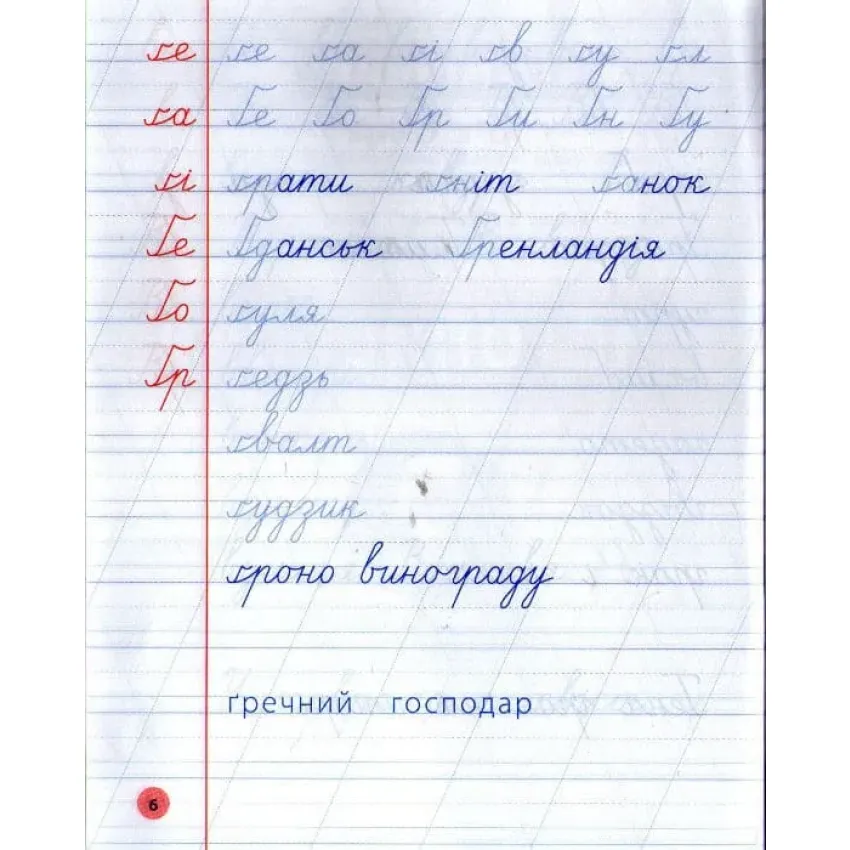 ґе ґе ґа ґі ґв ґу ґл
ґа Ґе Ґо Ґр Ґи Ґн Ґу
ґі ґрати ґніт ґанок
Ґе Ґданськ Ґренландія
Ґо ґуля
Ґр ґедзь
ґвалт
ґудзик
ґроно винограду
ґречний господар
6